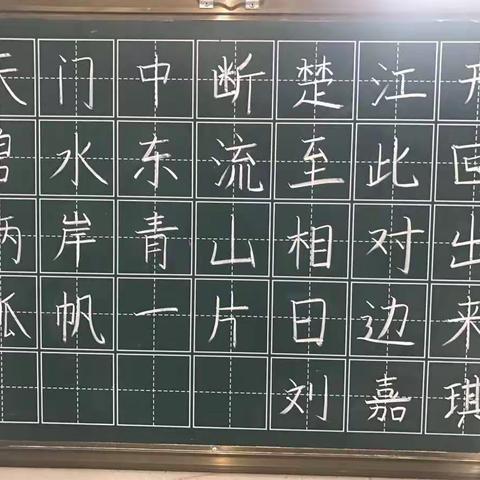 天门中断楚江开
碧水东流至此回
两岸青山相对出
孤帆一片日边来
刘嘉琪